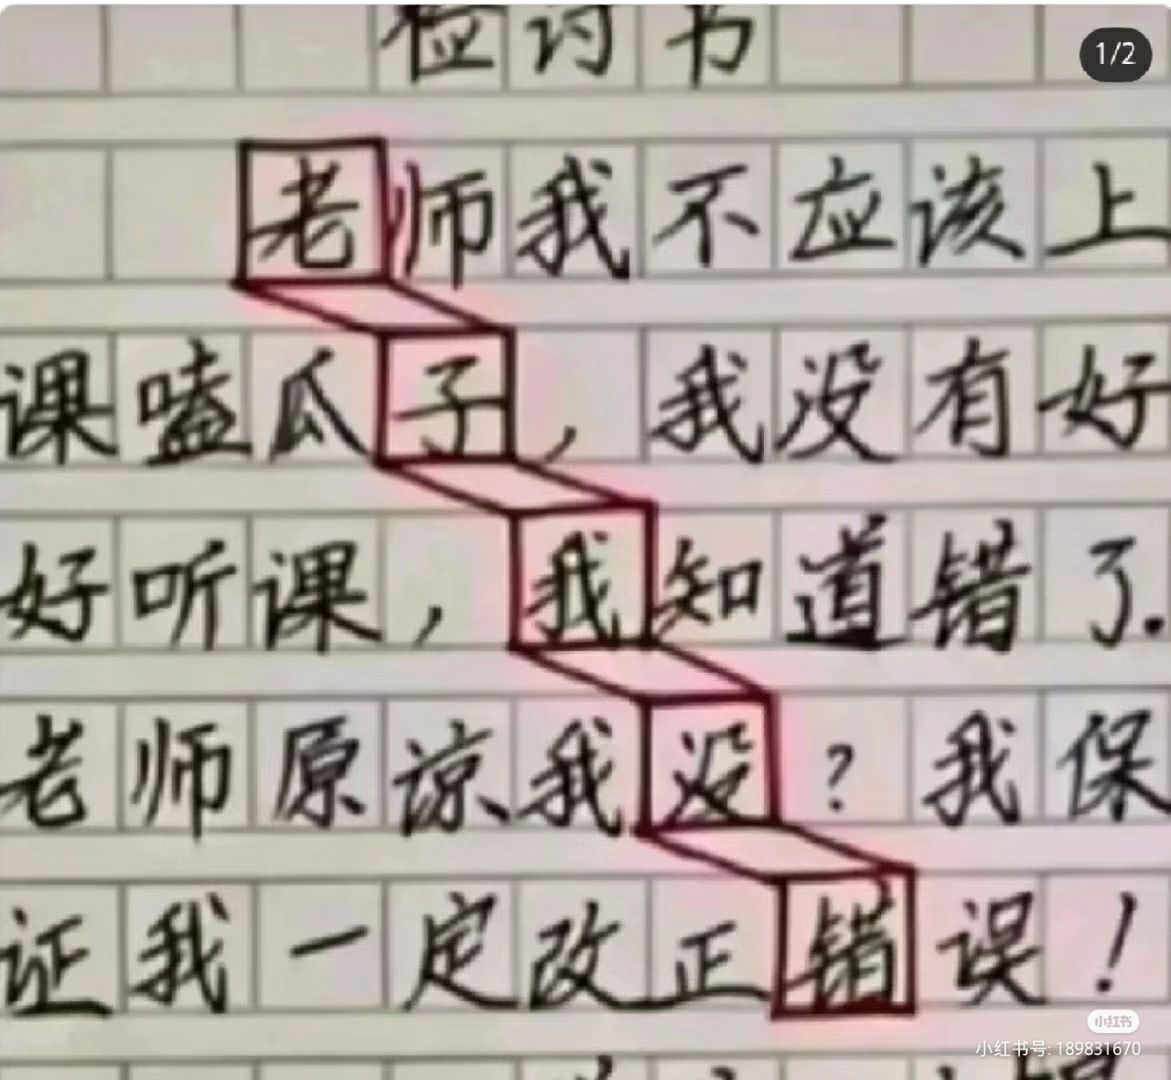 检讨书
1/2
老师我不应该上
课嗑瓜子，我没有好
好听课，我知道错了.
老师原谅我没？我保
证我一定改正错误！
小红书
小红书号: 189831670